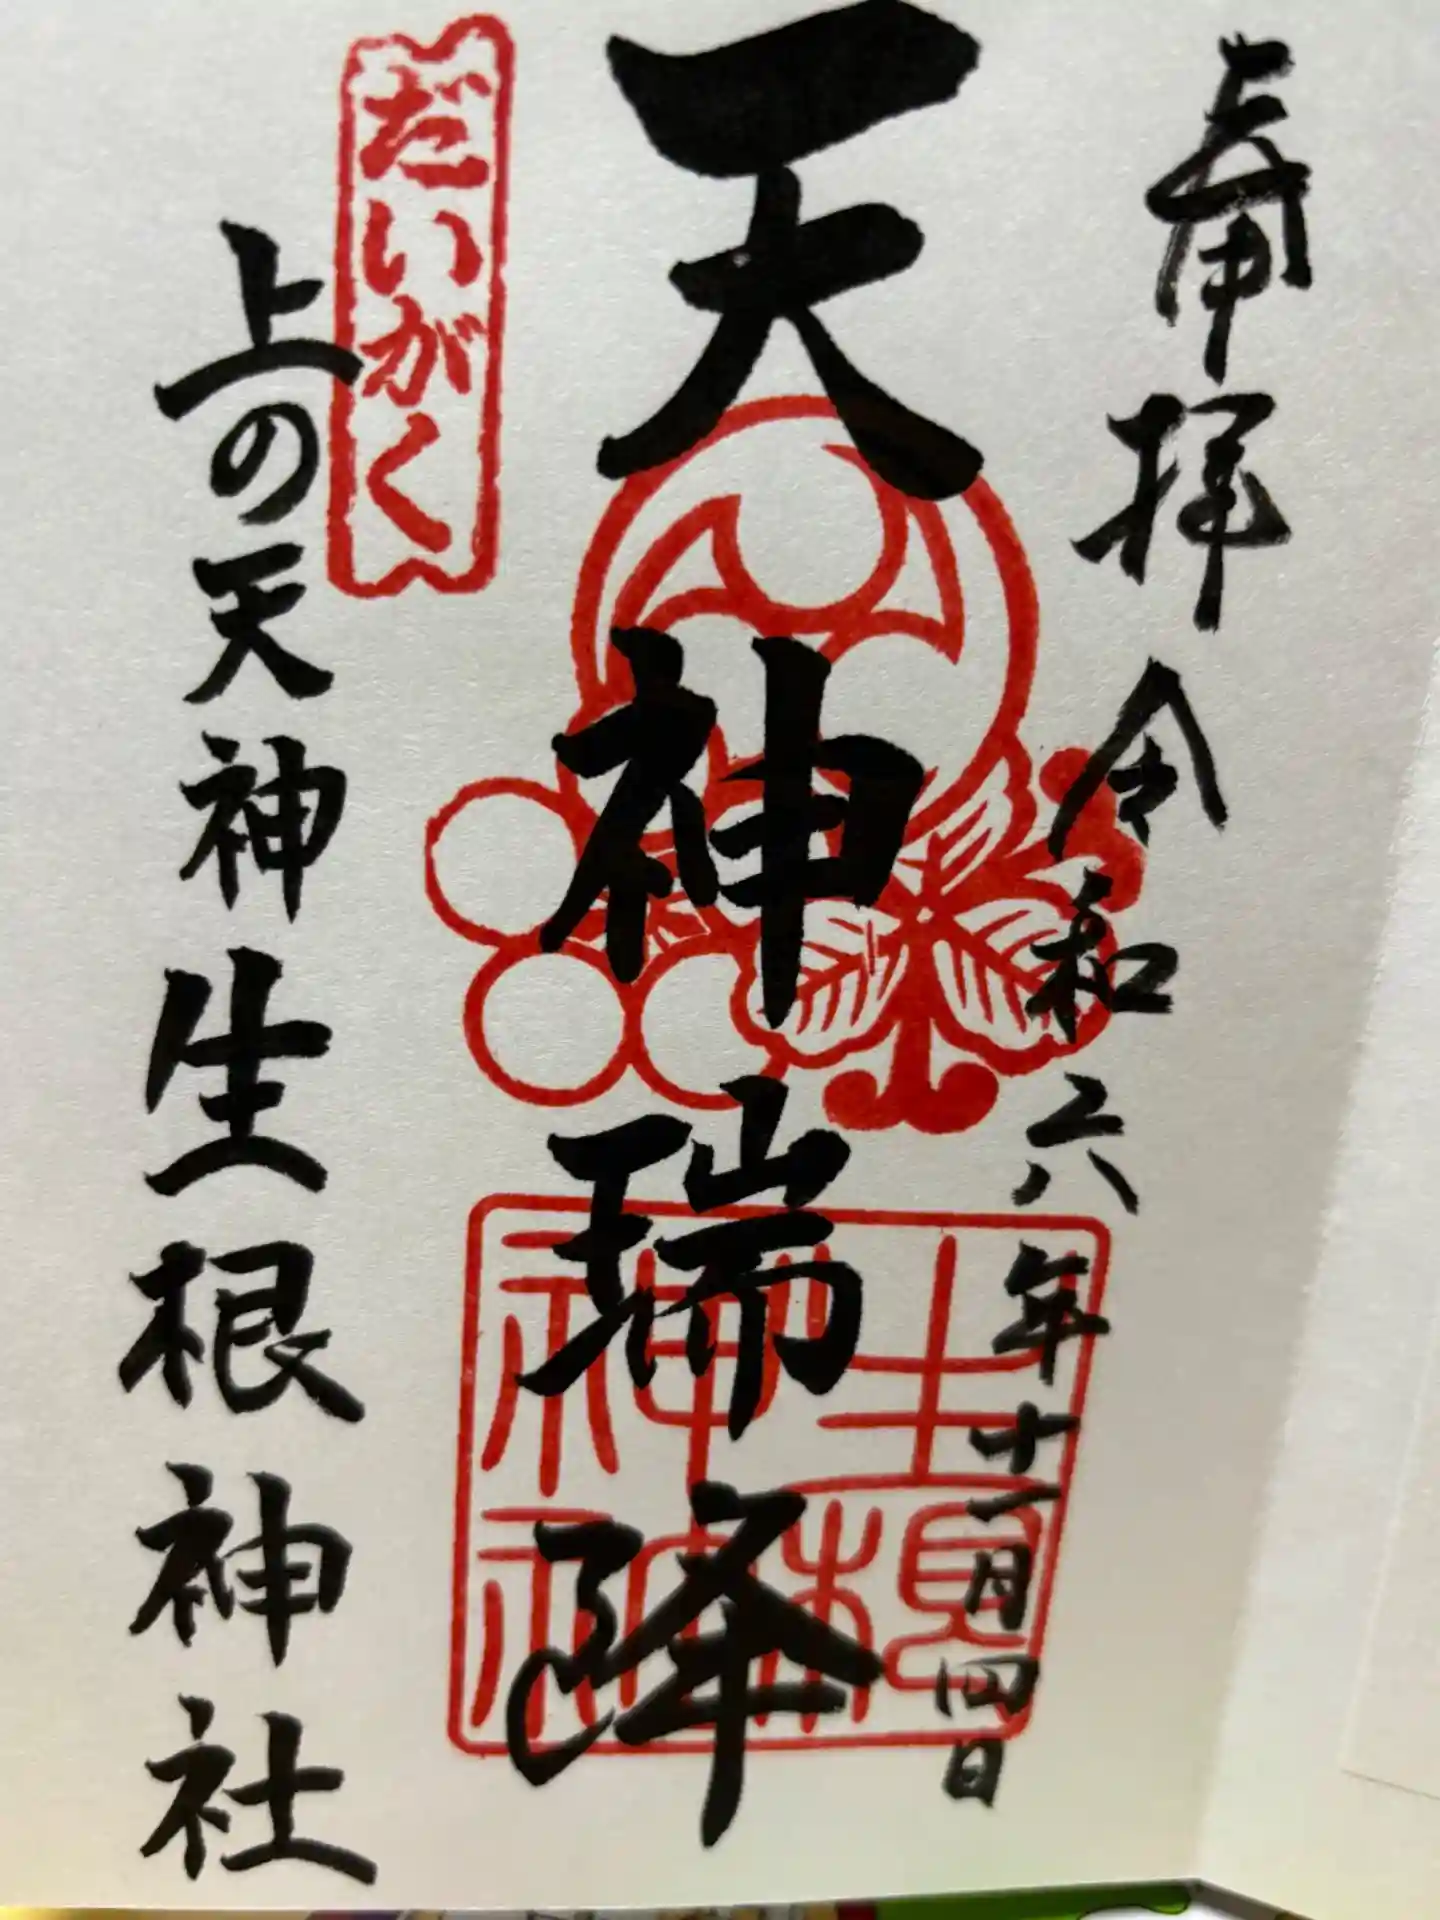 奉拝 令和六年十一月四日
天神瑞降
だいがく
上の天神生根神社
生根神社